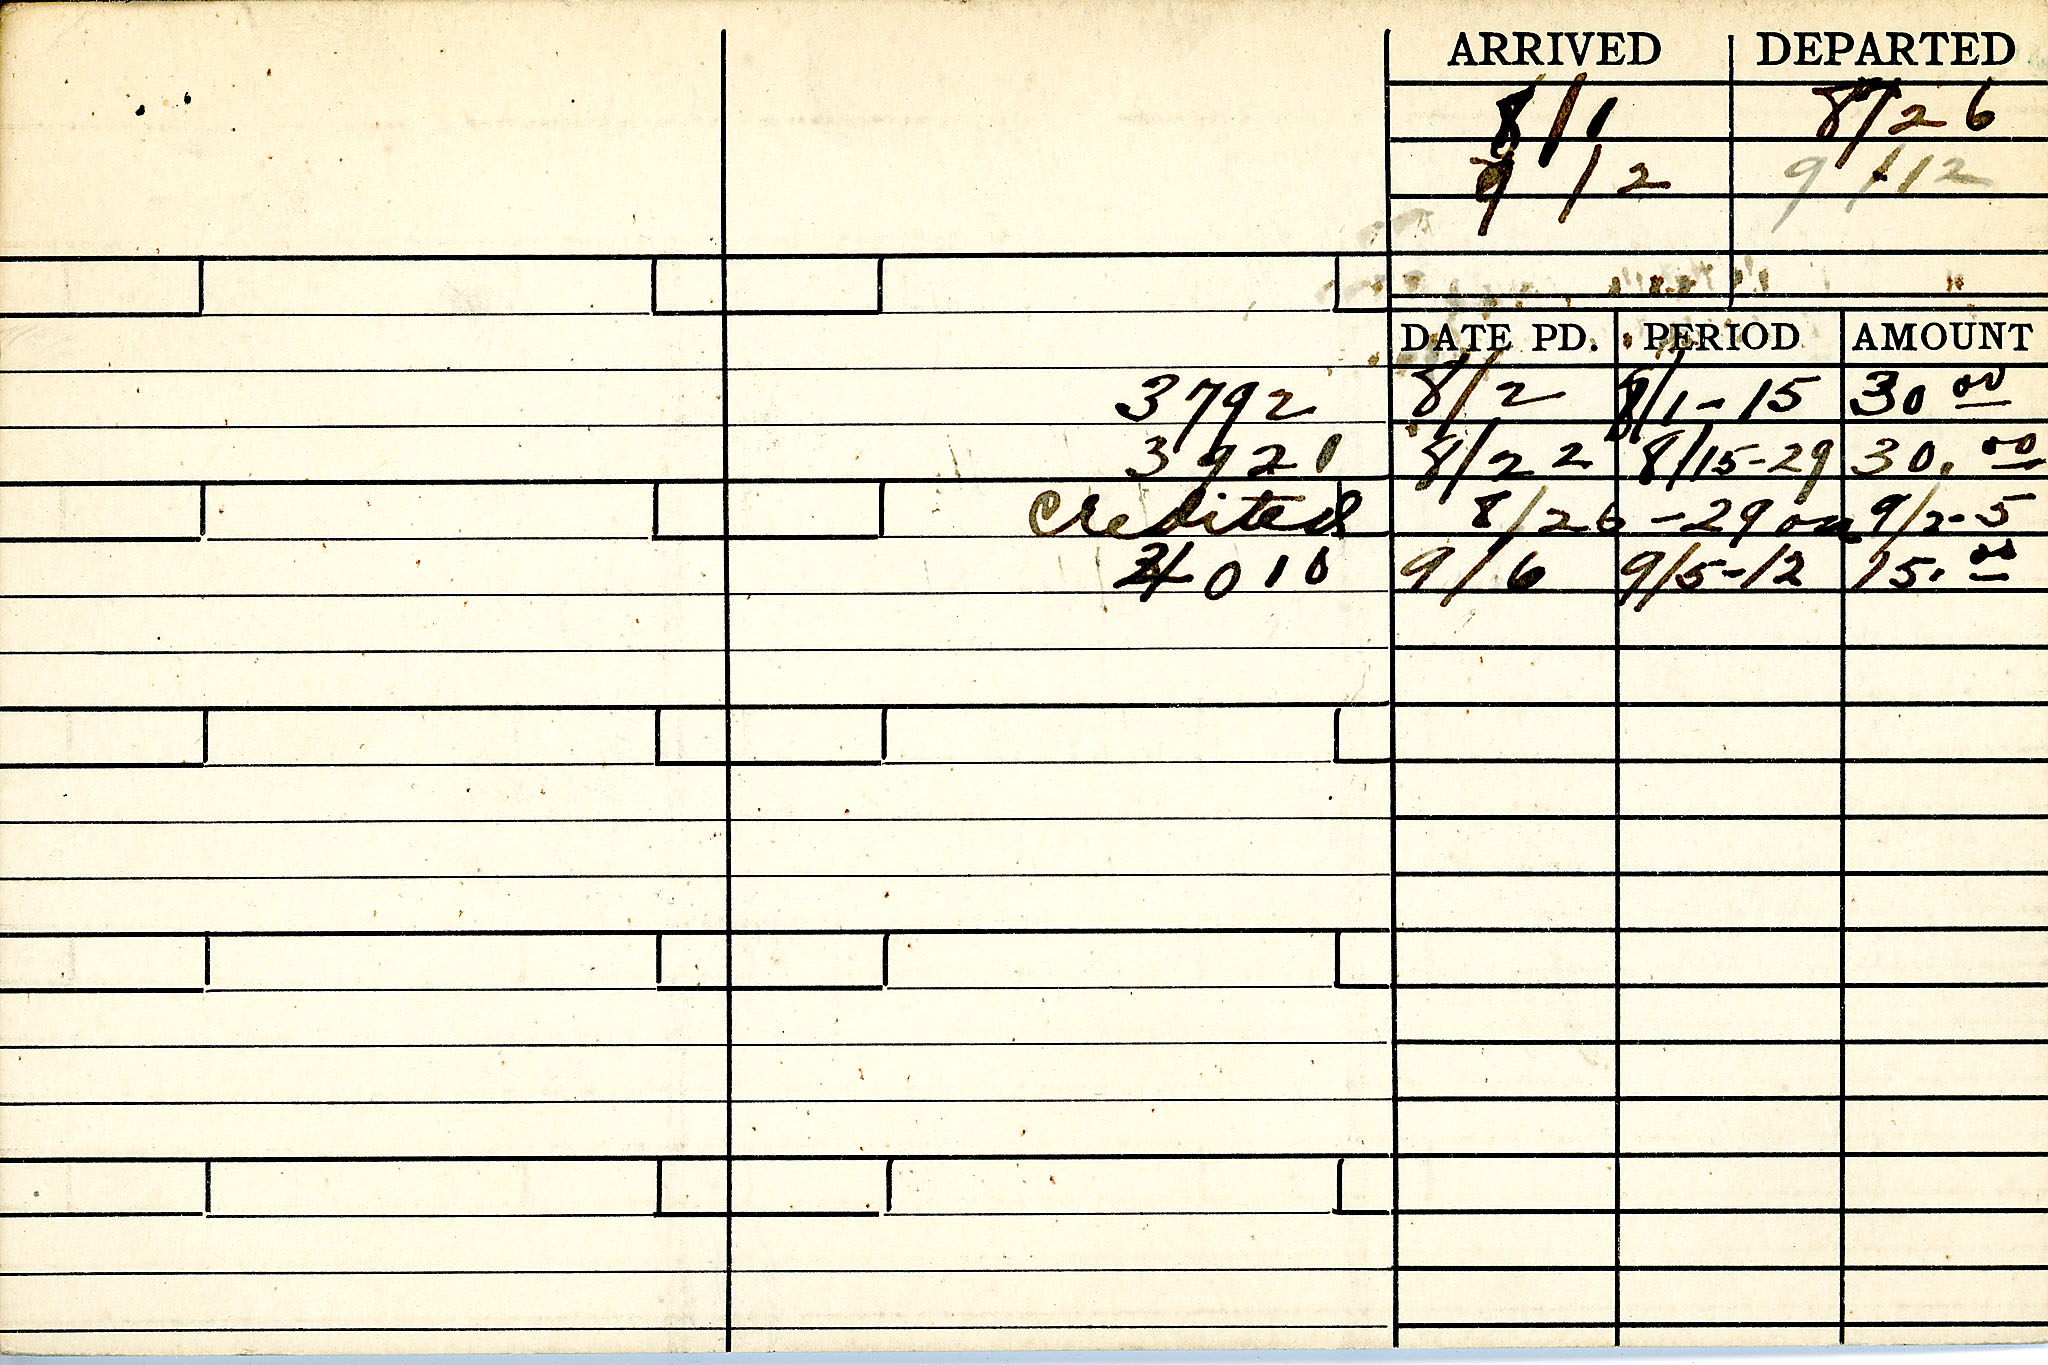 ARRIVED DEPARTED
8/1 8/26
9/2 9/12
DATE PD. PERIOD AMOUNT
3792 8/2 8/1-15 30 00
3921 8/22 8/15-29 30.00
Credited 8/26-29 on 9/2-5
4010 9/6 9/5-12 15.00